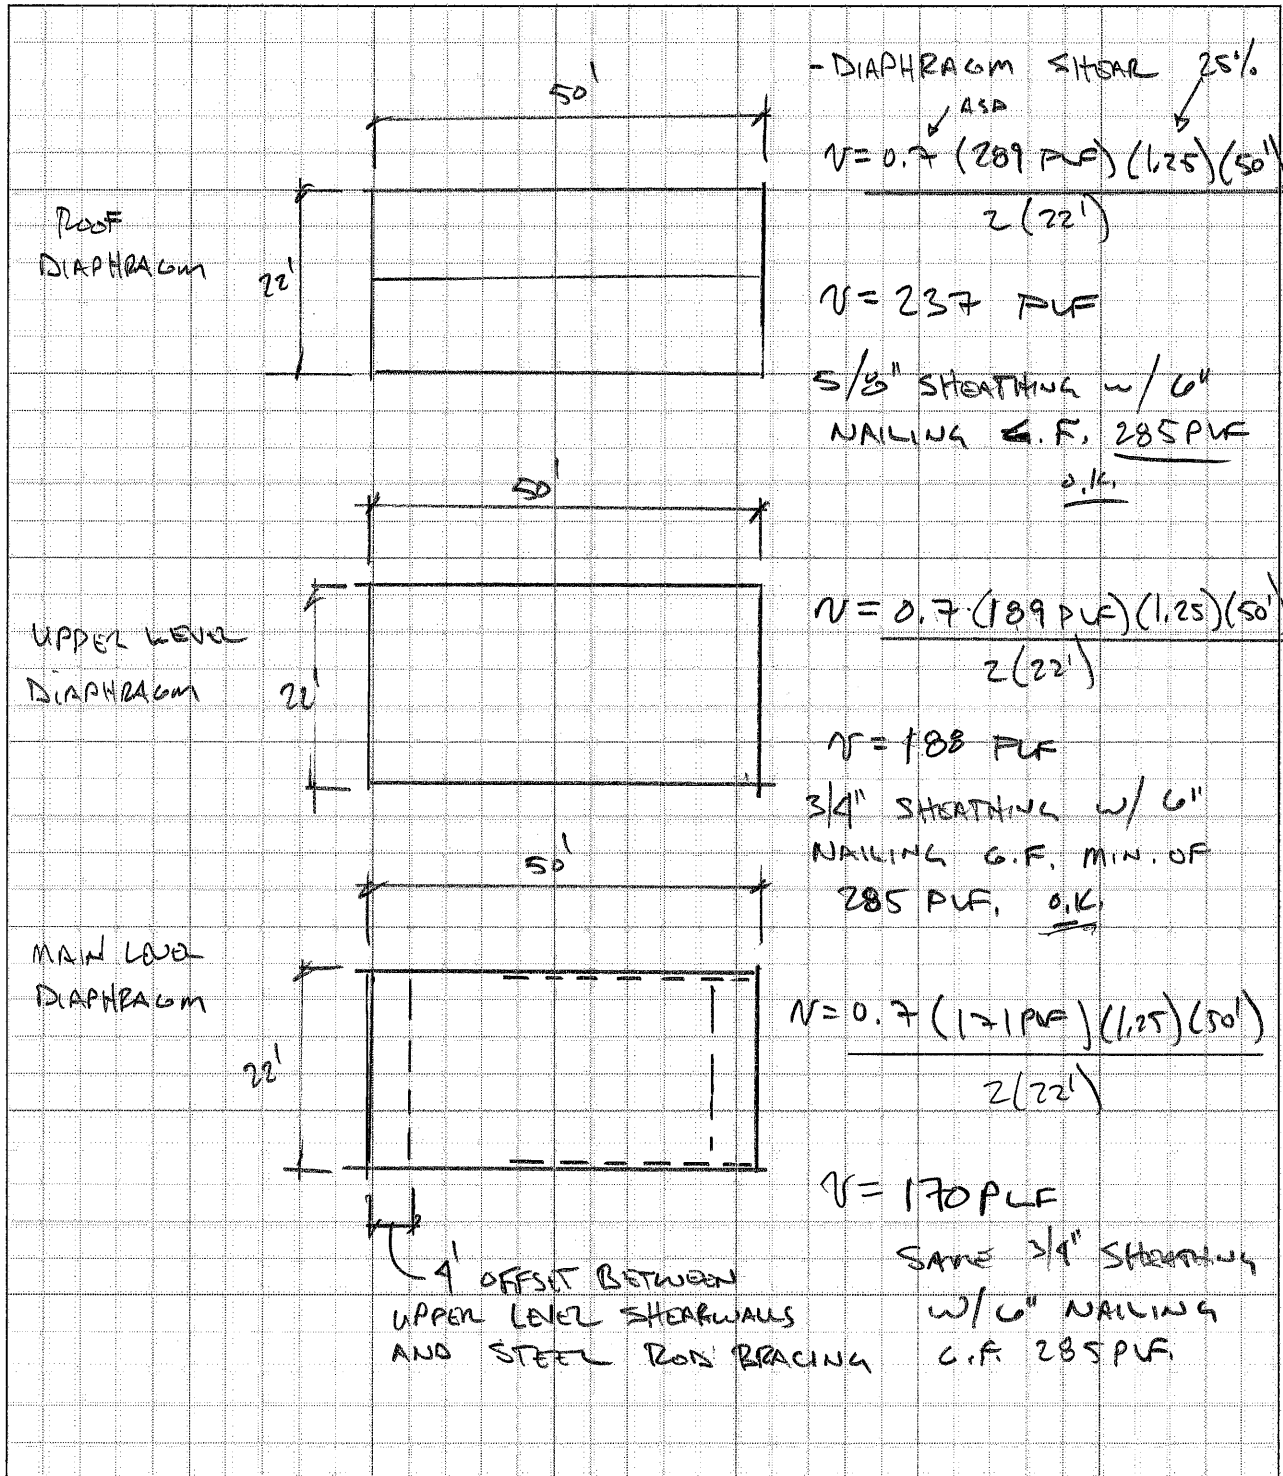 50'
ROOF
DIAPHRAGM
22'
- DIAPHRAGM SHEAR 25%
ASD
V = 0.7 (289 PLF) (1.25) (50')
2 (22')
V = 237 PLF
5/8" SHEATHING W/ 6"
NAILING G.F. 285 PLF
O.K.
50'
UPPER LEVEL
DIAPHRAGM
22'
V = 0.7 (189 PLF) (1.25) (50')
2 (22')
V = 188 PLF
3/4" SHEATHING W/ 6"
NAILING G.F. MIN. OF
285 PLF. O.K.
50'
MAIN LEVEL
DIAPHRAGM
22'
V = 0.7 (171 PLF) (1.25) (50')
2 (22')
V = 170 PLF
SAME 3/4" SHEATHING
W/ 6" NAILING
G.F. 285 PLF.
4' OFFSET BETWEEN
UPPER LEVEL SHEARWALLS
AND STEEL ROD BRACING